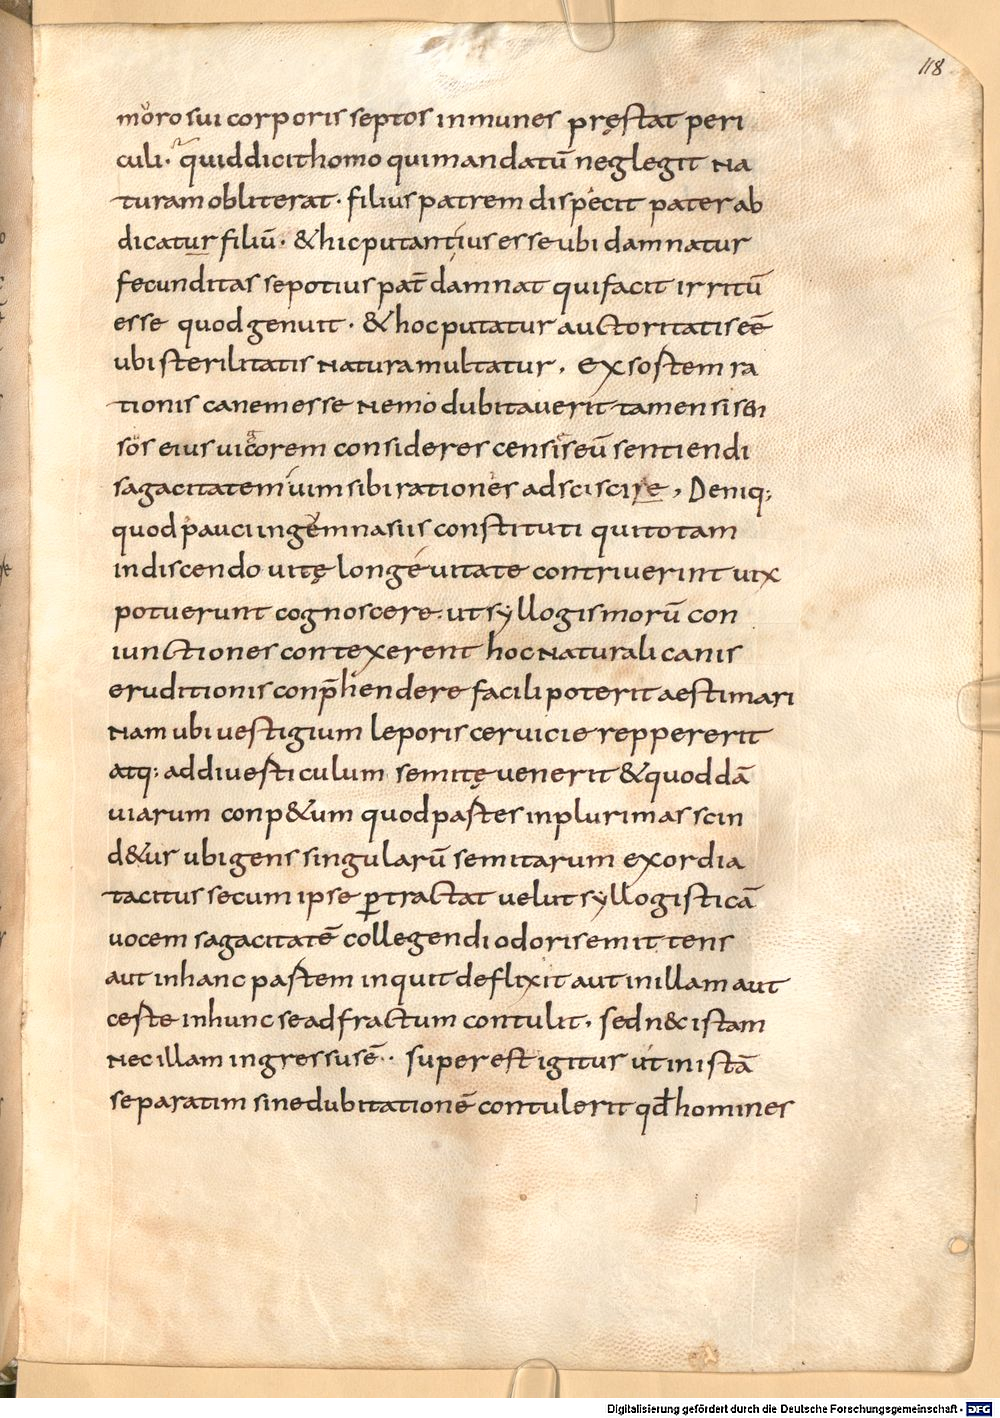 118
moro sui corporis septos inmunes pręstat peri
culi · quid dicit homo qui mandatū neglegit na
turam obliterat · filius patrem dispecit pater ab
dicatur filiū · & hic putant ius esse ubi damnatur
fecunditas se potius pat̄ damnat qui facit irritū
esse quod genuit · & hoc putatur auctoritatis eē
ubi sterilitatis natura multatur , exsostem ra
tionis canem esse nemo dubitauerit tamen si sen
sos eius uicorem consideres censis eū sentiendi
sagacitatem uim sibi rationes adsciscire , Deniq;
quod pauci in gemnasiis constituti qui totam
in discendo uitę longeuitate contriuerint uix
potuerunt cognoscere · ut syllogismorū con
iunctiones contexerent hoc naturali canis
eruditionis conp̄hendere facili poterit aestimari
Nam ubi uestigium leporis ceruicie reppererit
atq; ad diuesticulum semitę uenerit & quoddā
uiarum conp&um quod pastes in plurimas scin
d&ur ubi gens singularū semitarum exordia
tacitus secum ipse ꝑtractat uelut syllogisticā
uocem sagacitatē collegendi odoris emittens
aut in hanc pastem inquit deflixit aut in illam aut
ceste in hunc se ad fractum contulit , sed n& istam
nec illam ingressus ē · · superest igitur ut in istā
separatim sine dubitationē contulerit qđ homines
Digitalisierung gefördert durch die Deutsche Forschungsgemeinschaft - DFG